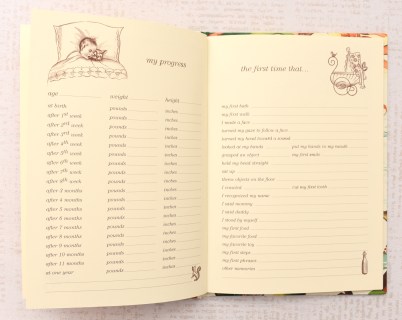 my progress
age weight height
at birth pounds inches
after 1st week pounds inches
after 2nd week pounds inches
after 3rd week pounds inches
after 4th week pounds inches
after 5th week pounds inches
after 6th week pounds inches
after 7th week pounds inches
after 8th week pounds inches
after 3 months pounds inches
after 4 months pounds inches
after 5 months pounds inches
after 6 months pounds inches
after 7 months pounds inches
after 8 months pounds inches
after 9 months pounds inches
after 10 months pounds inches
after 11 months pounds inches
at one year pounds inches
the first time that...
my first bath
my first walk
I made a fuss
turned my gaze to follow a face
turned my head toward a sound
looked at my hands put my hands to my mouth
grasped an object my first smile
held my head straight
sat up
threw objects on the floor
I crawled cut my first tooth
I recognized my name
I said mommy
I said daddy
I stood by myself
my first food
my favorite food
my favorite toy
my first steps
my first phrases
other memories